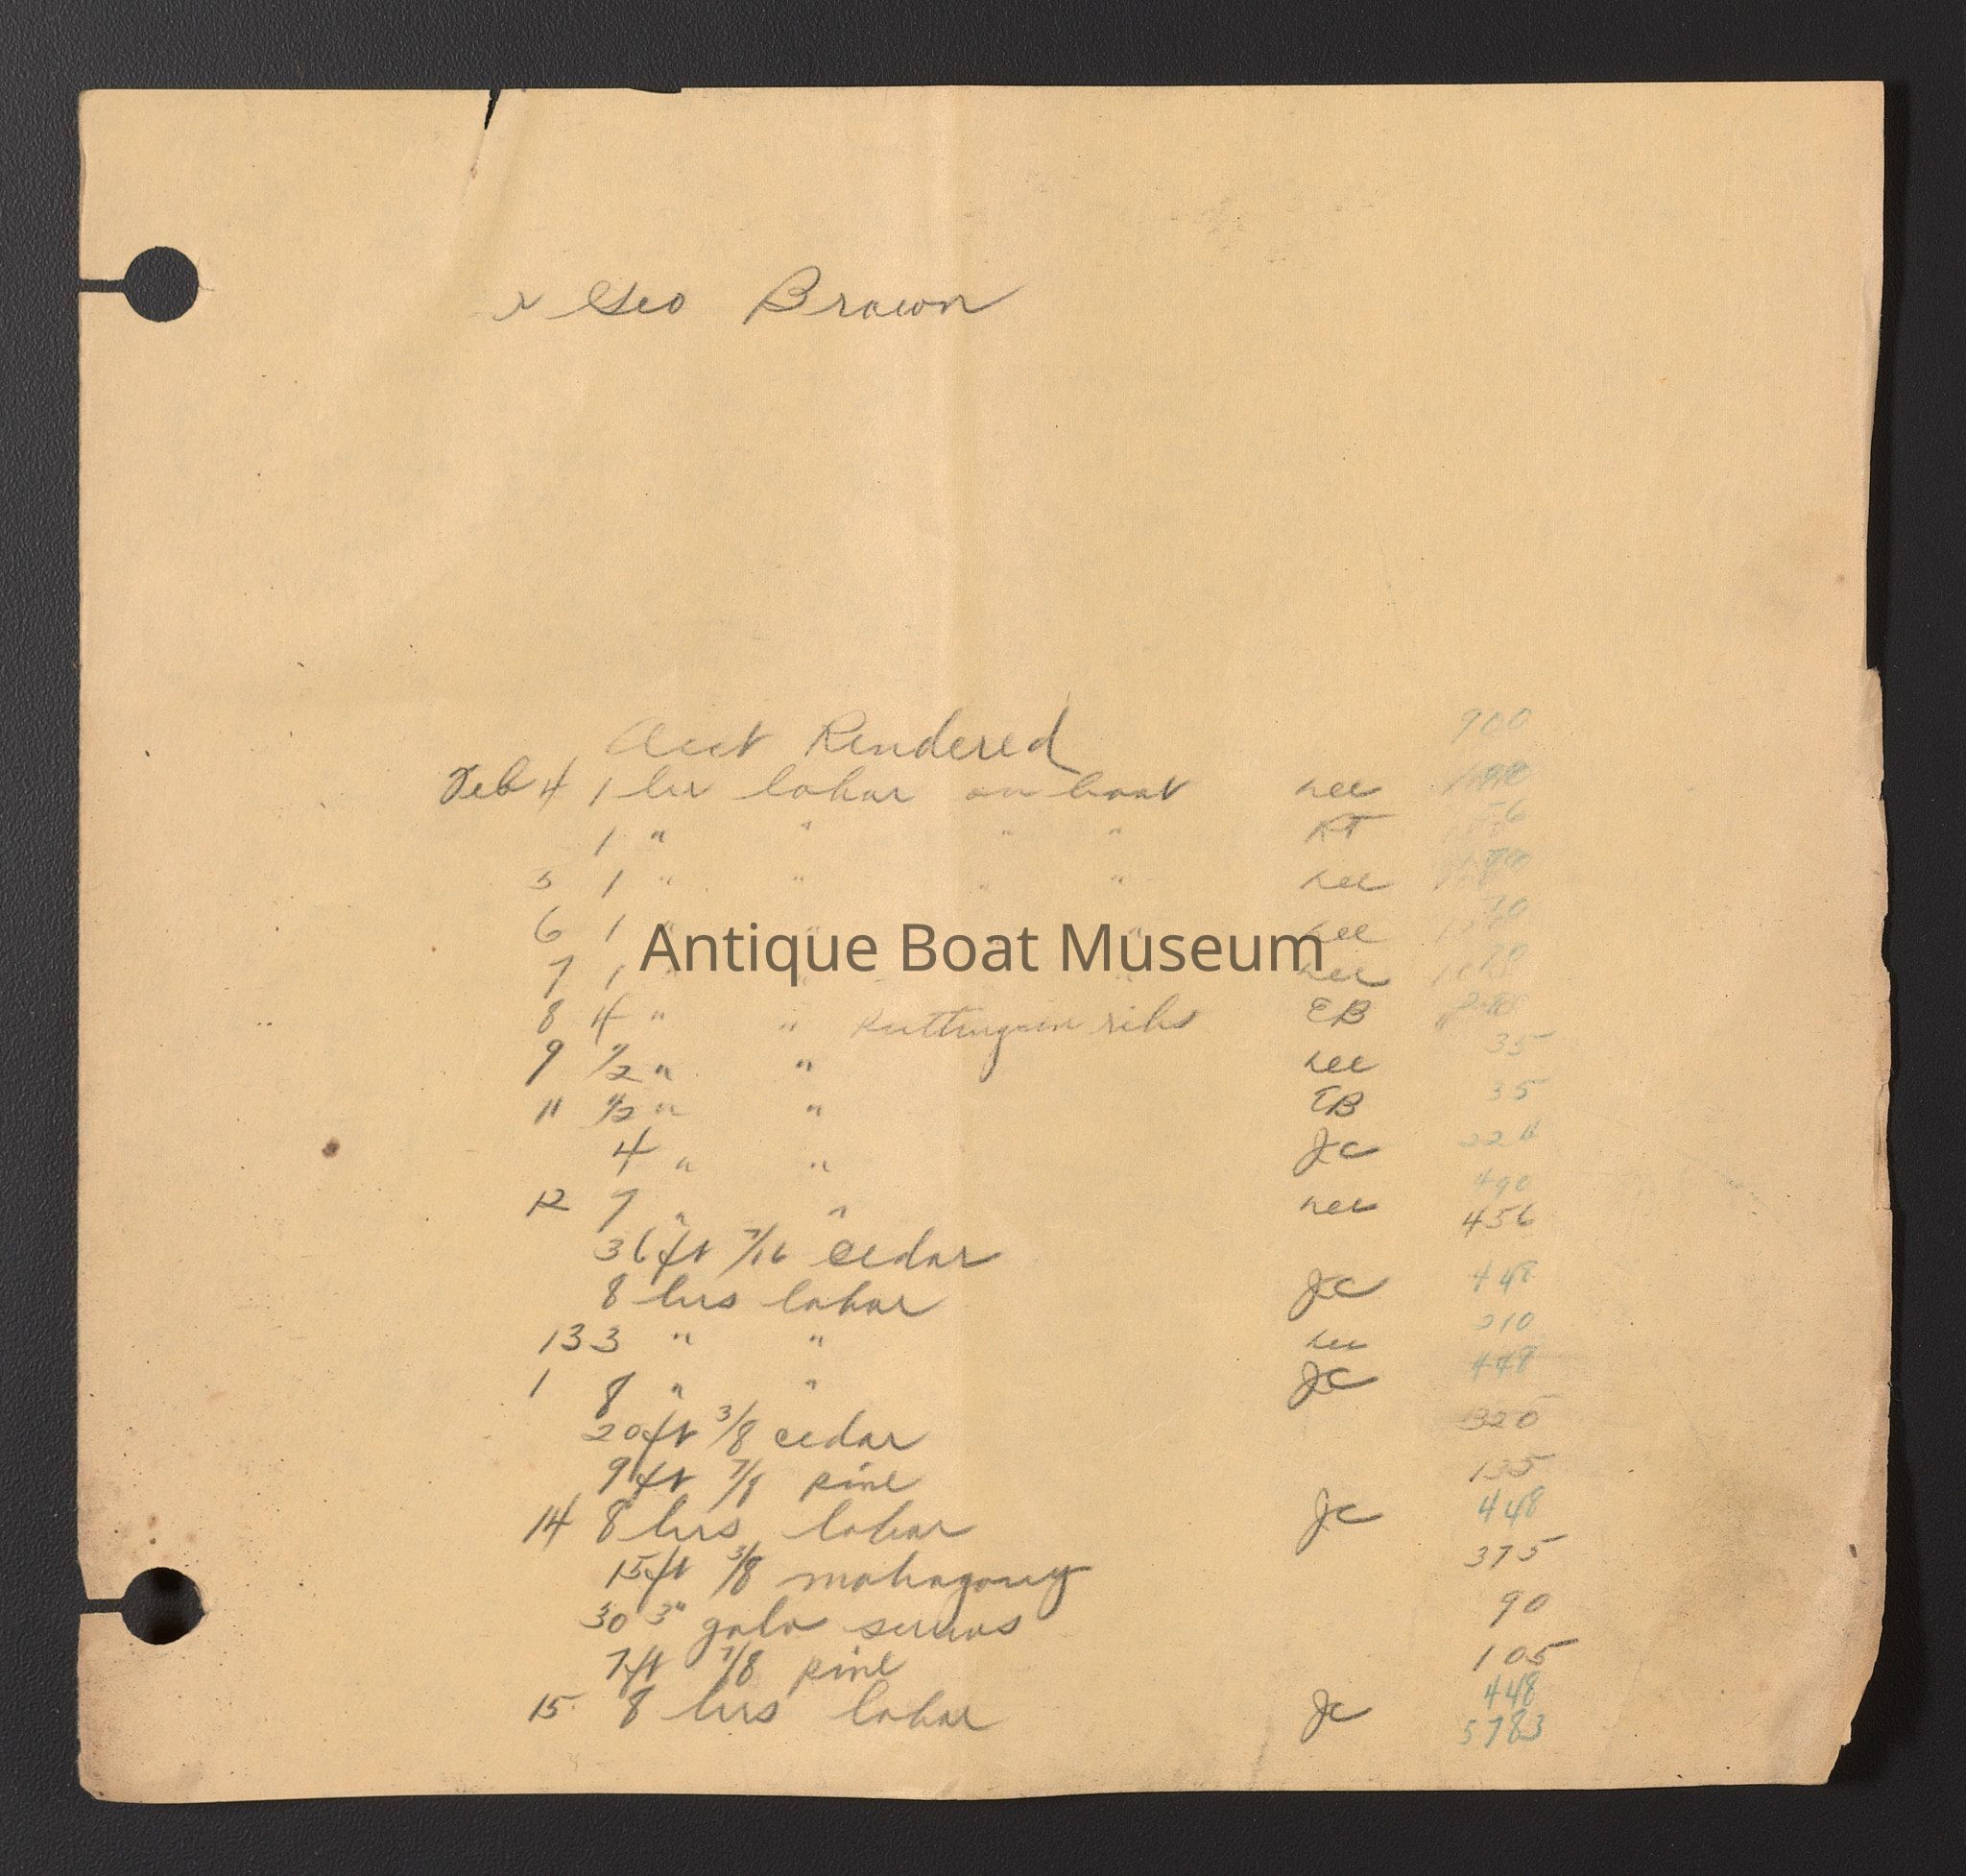 Geo Brown
Acct Rendered 900
Feb 4 1 hr labor on boat Lee
1 " " " " RT 56
5 1 " " " " Lee 70
6 1 " " " Lee 70
7 1 " " " Lee 70
8 4 " " Putting in ribs EB 280
9 1/2 " " Lee 35
11 1/2 " " EB 35
4 " " JC 224
12 7 " " Lee 490
36 ft 7/16 cedar 456
8 hrs labor JC 448
13 3 " " Lee 210
1 8 " " JC 448
20 ft 3/8 cedar 320
9 ft 7/8 pine 135
14 8 hrs labor JC 448
15 ft 3/8 mahogany 375
30 3" galv screws 90
7 ft 7/8 pine 105
15 8 hrs labor JC 448
5783
Antique Boat Museum